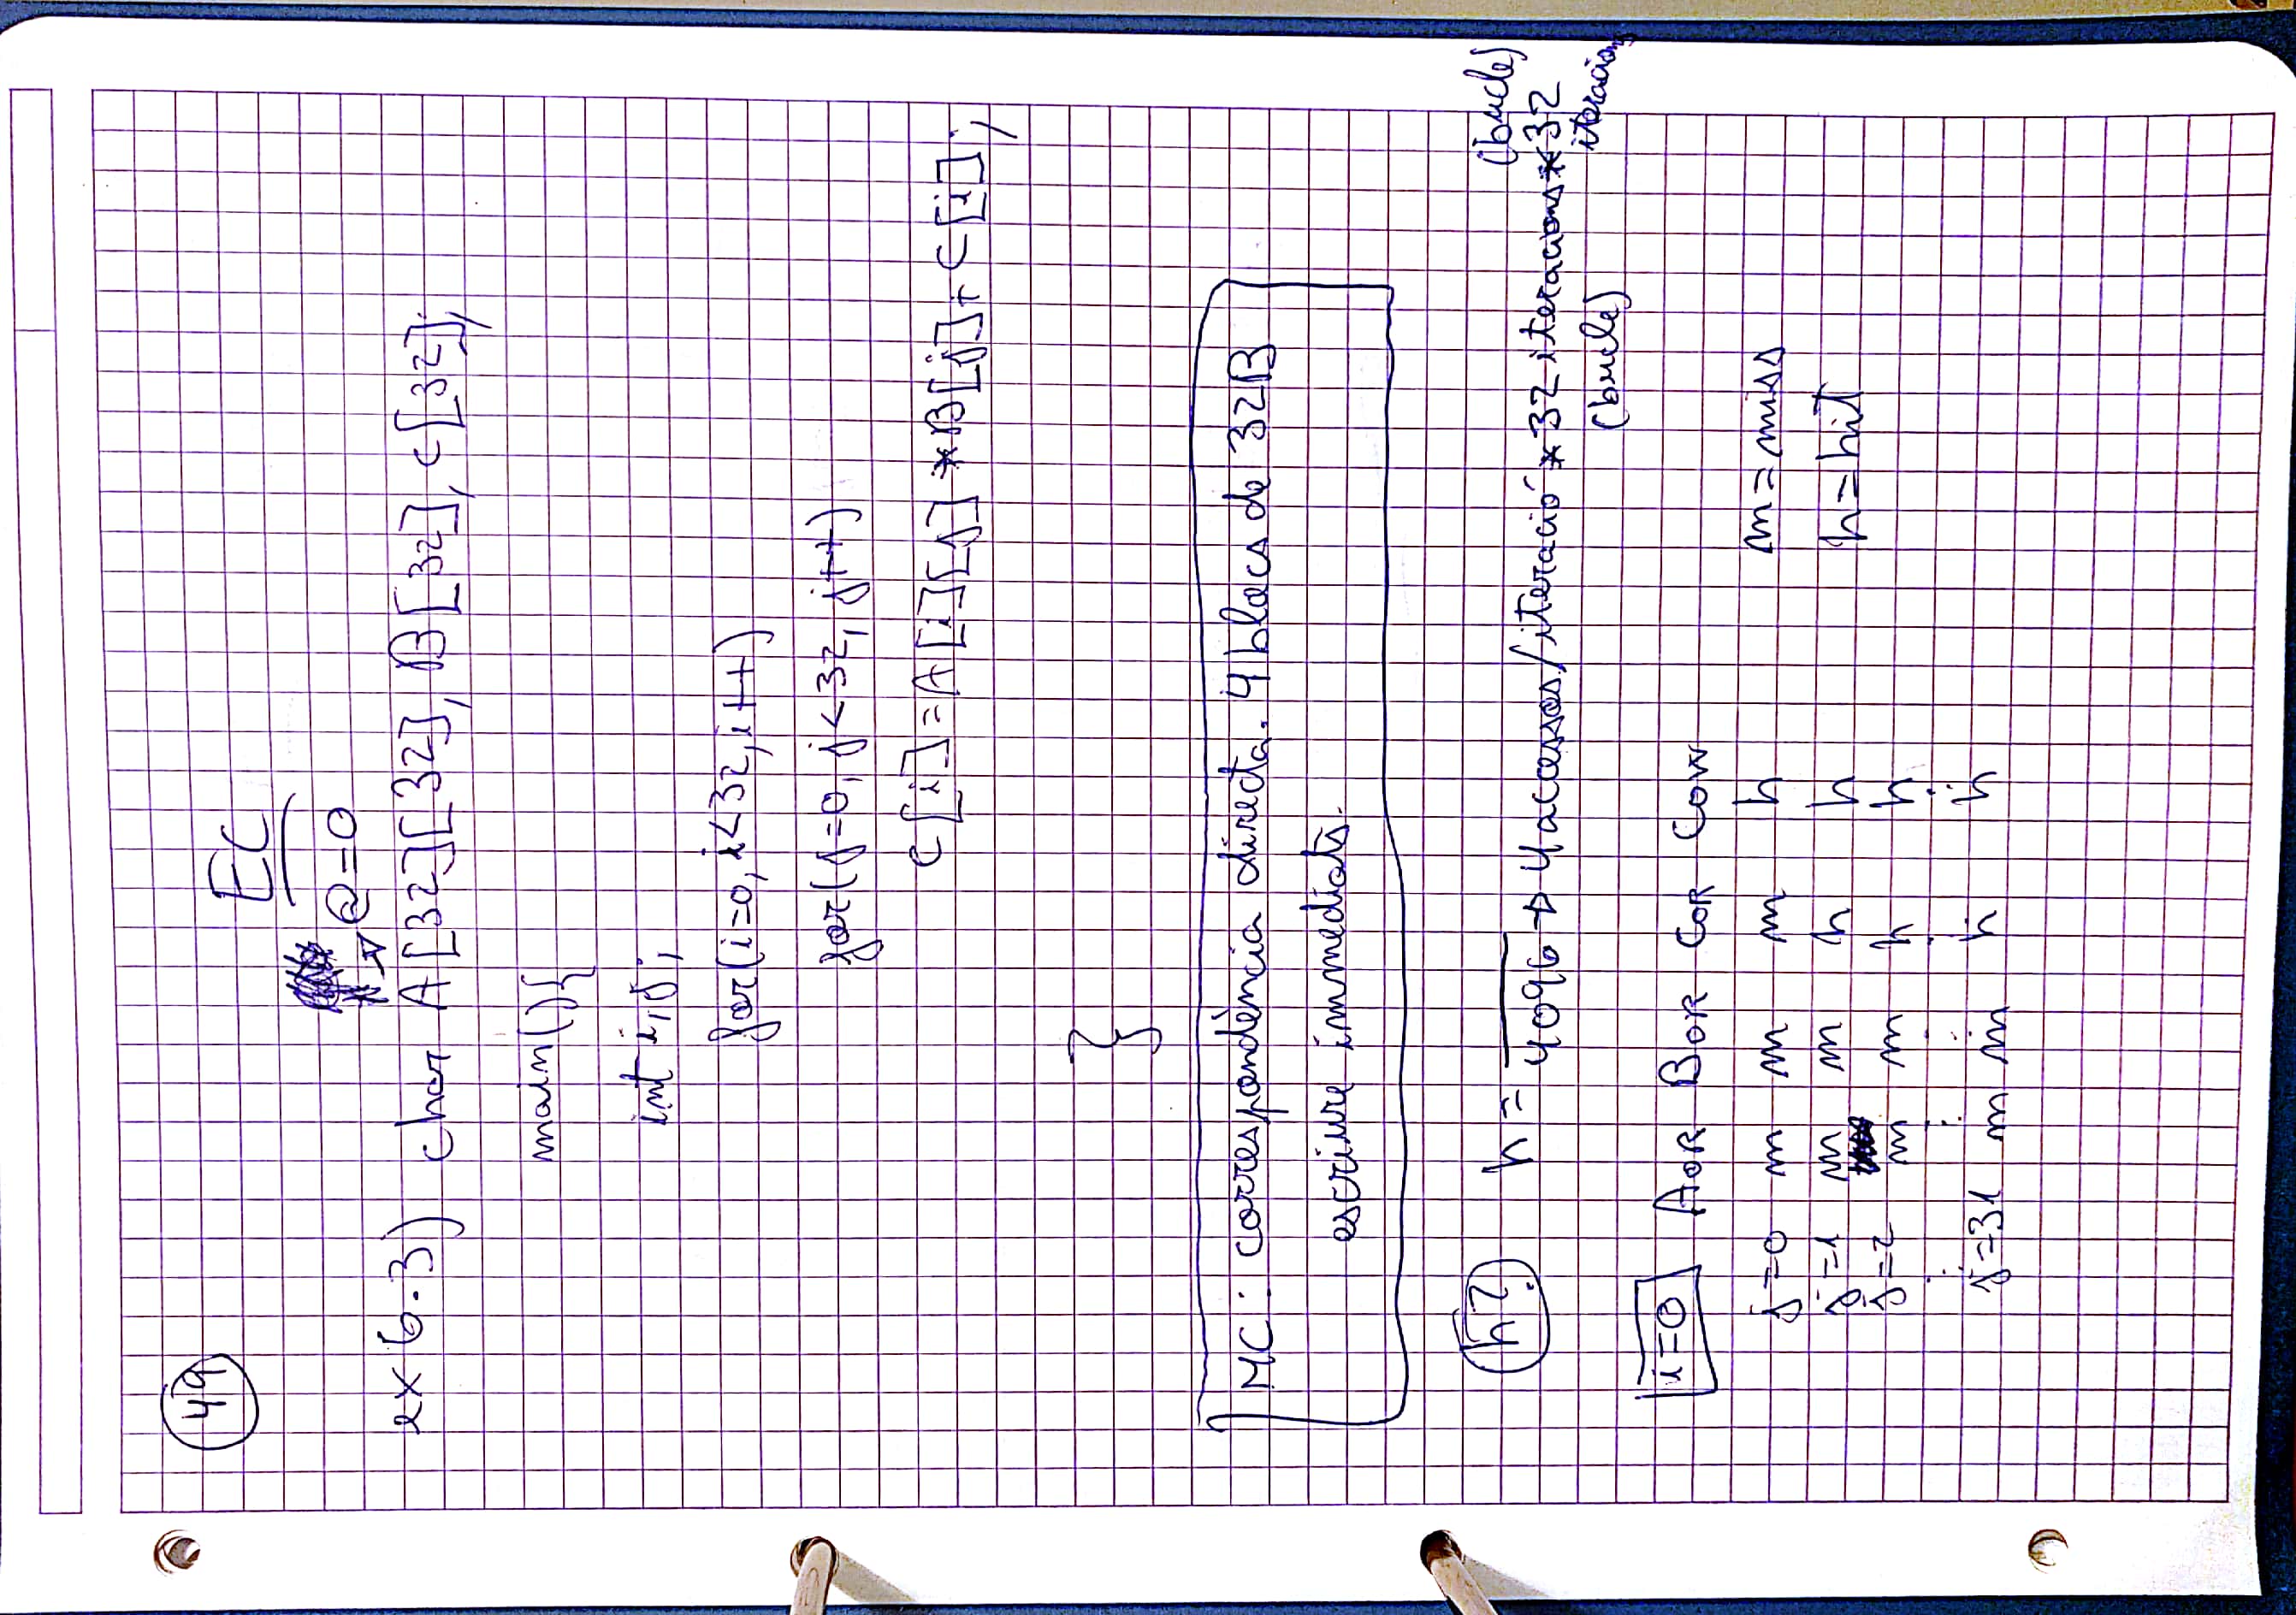 49
EC
@=0
ex 6.3) char A[32][32], B[32], C[32];
main(){
int i,j;
for(i=0, i<32, i++)
for(j=0, j<32, j++)
C[i]=A[i][j]*B[j]+C[i];
}
MC: correspondència directa. 4 blocs de 32B
escriure immediats.
(bucle)
h? h = ___ 4096 → 4 accessos/iteració * 32 iteracions * 32
(bucle) iteracions
i=0 A0R B0R C0R C0W
j=0 m m m h m=miss
j=1 m m h h h=hit
j=2 m m h h
: : : : :
j=31 m m h h